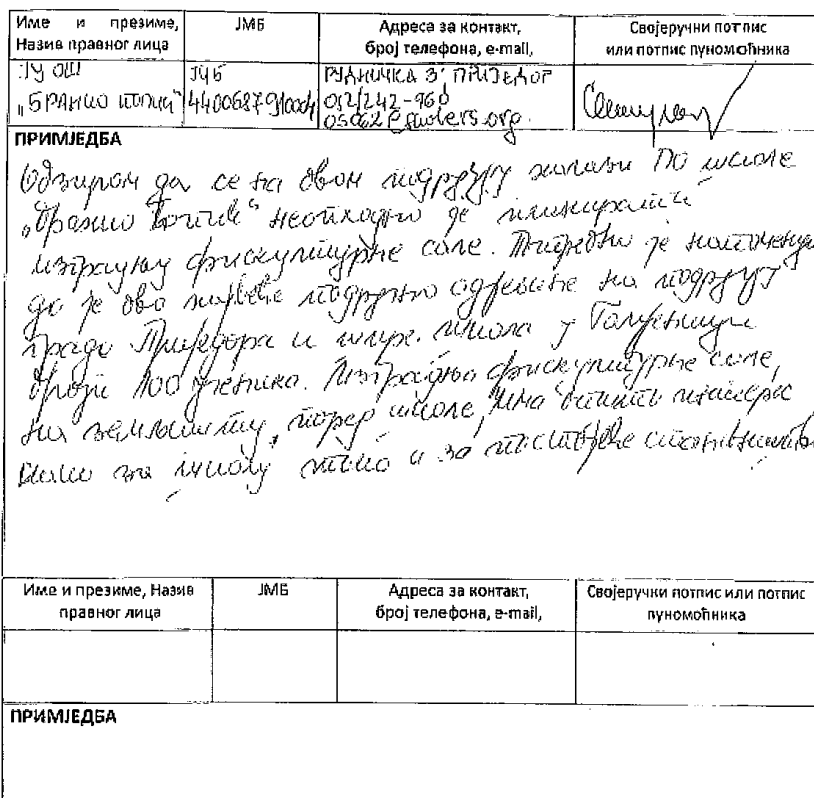 Име и презиме, Назив правног лица
ЈМБ
Адреса за контакт, број телефона, e-mail,
Својеручни потпис или потпис пуномоћника
ЈУ ОШ
„БРАНКО ЋОПИЋ“
ЈИБ
РУДНИЧКА 3, ПРИЈЕДОР
052/242-960
ПРИМЈЕДБА
Обзиром да се на овом подручју налази ПО школе
„Бранко Ћопић“ неопходно је планирати
изградњу фискултурне сале. Потребно је напоменути
да је ово највеће подручно одјељење на подручју
града Приједора и шире. Школа у
броји 100 ученика. Изградња фискултурне сале,
на земљишту, поред школе, има општи интерес
како за школу тако и за становништво
Име и презиме, Назив правног лица
ЈМБ
Адреса за контакт, број телефона, e-mail,
Својеручни потпис или потпис пуномоћника
ПРИМЈЕДБА